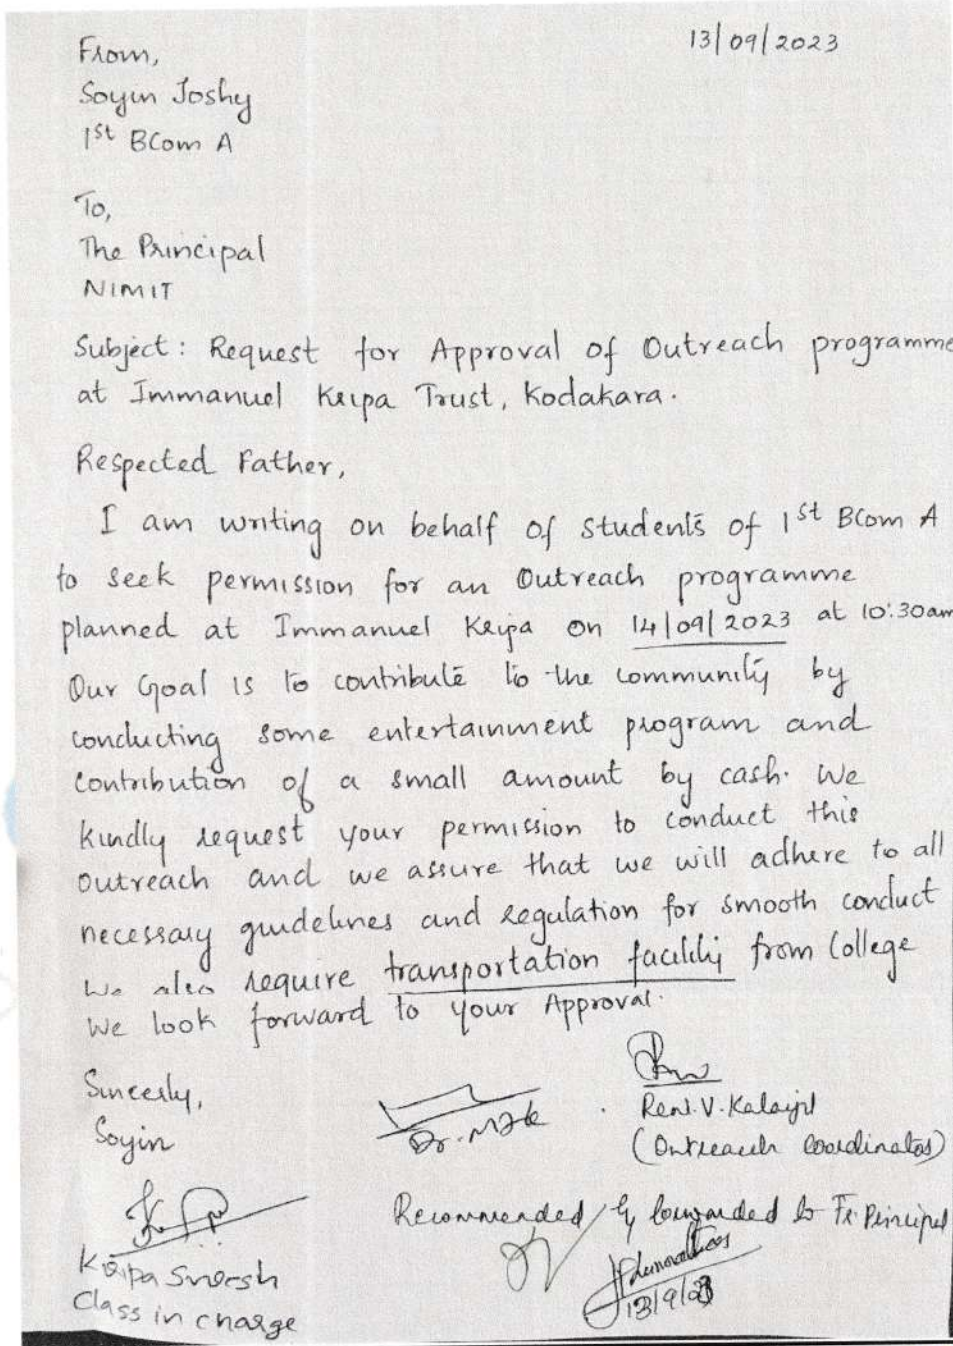 13/09/2023
From,
Soyin Joshy
1st BCom A
To,
The Principal
NIMIT
Subject: Request for Approval of Outreach programme
at Immanuel Kripa Trust, Kodakara.
Respected Father,
I am writing on behalf of students of 1st BCom A
to seek permission for an Outreach programme
planned at Immanuel Kripa on 14/09/2023 at 10:30am
Our Goal is to contribute to the community by
conducting some entertainment program and
contribution of a small amount by cash. We
kindly request your permission to conduct this
outreach and we assure that we will adhere to all
necessary guidelines and regulation for smooth conduct
We also require transportation facility from College
We look forward to your Approval.
Sincerly,
Soyin
Dr.
V.
(Outreach coordinator)
Recommended & forwarded to Fr. Principal
13/9/23
Kripa
Class in charge